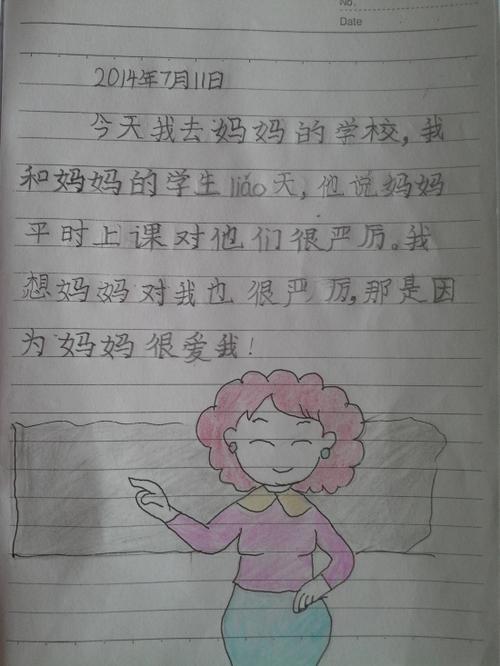 No.
Date
2014年7月11日
今天我去妈妈的学校,我
和妈妈的学生liáo天,他说妈妈
平时上课对他们很严厉。我
想妈妈对我也很严厉,那是因
为妈妈很爱我!